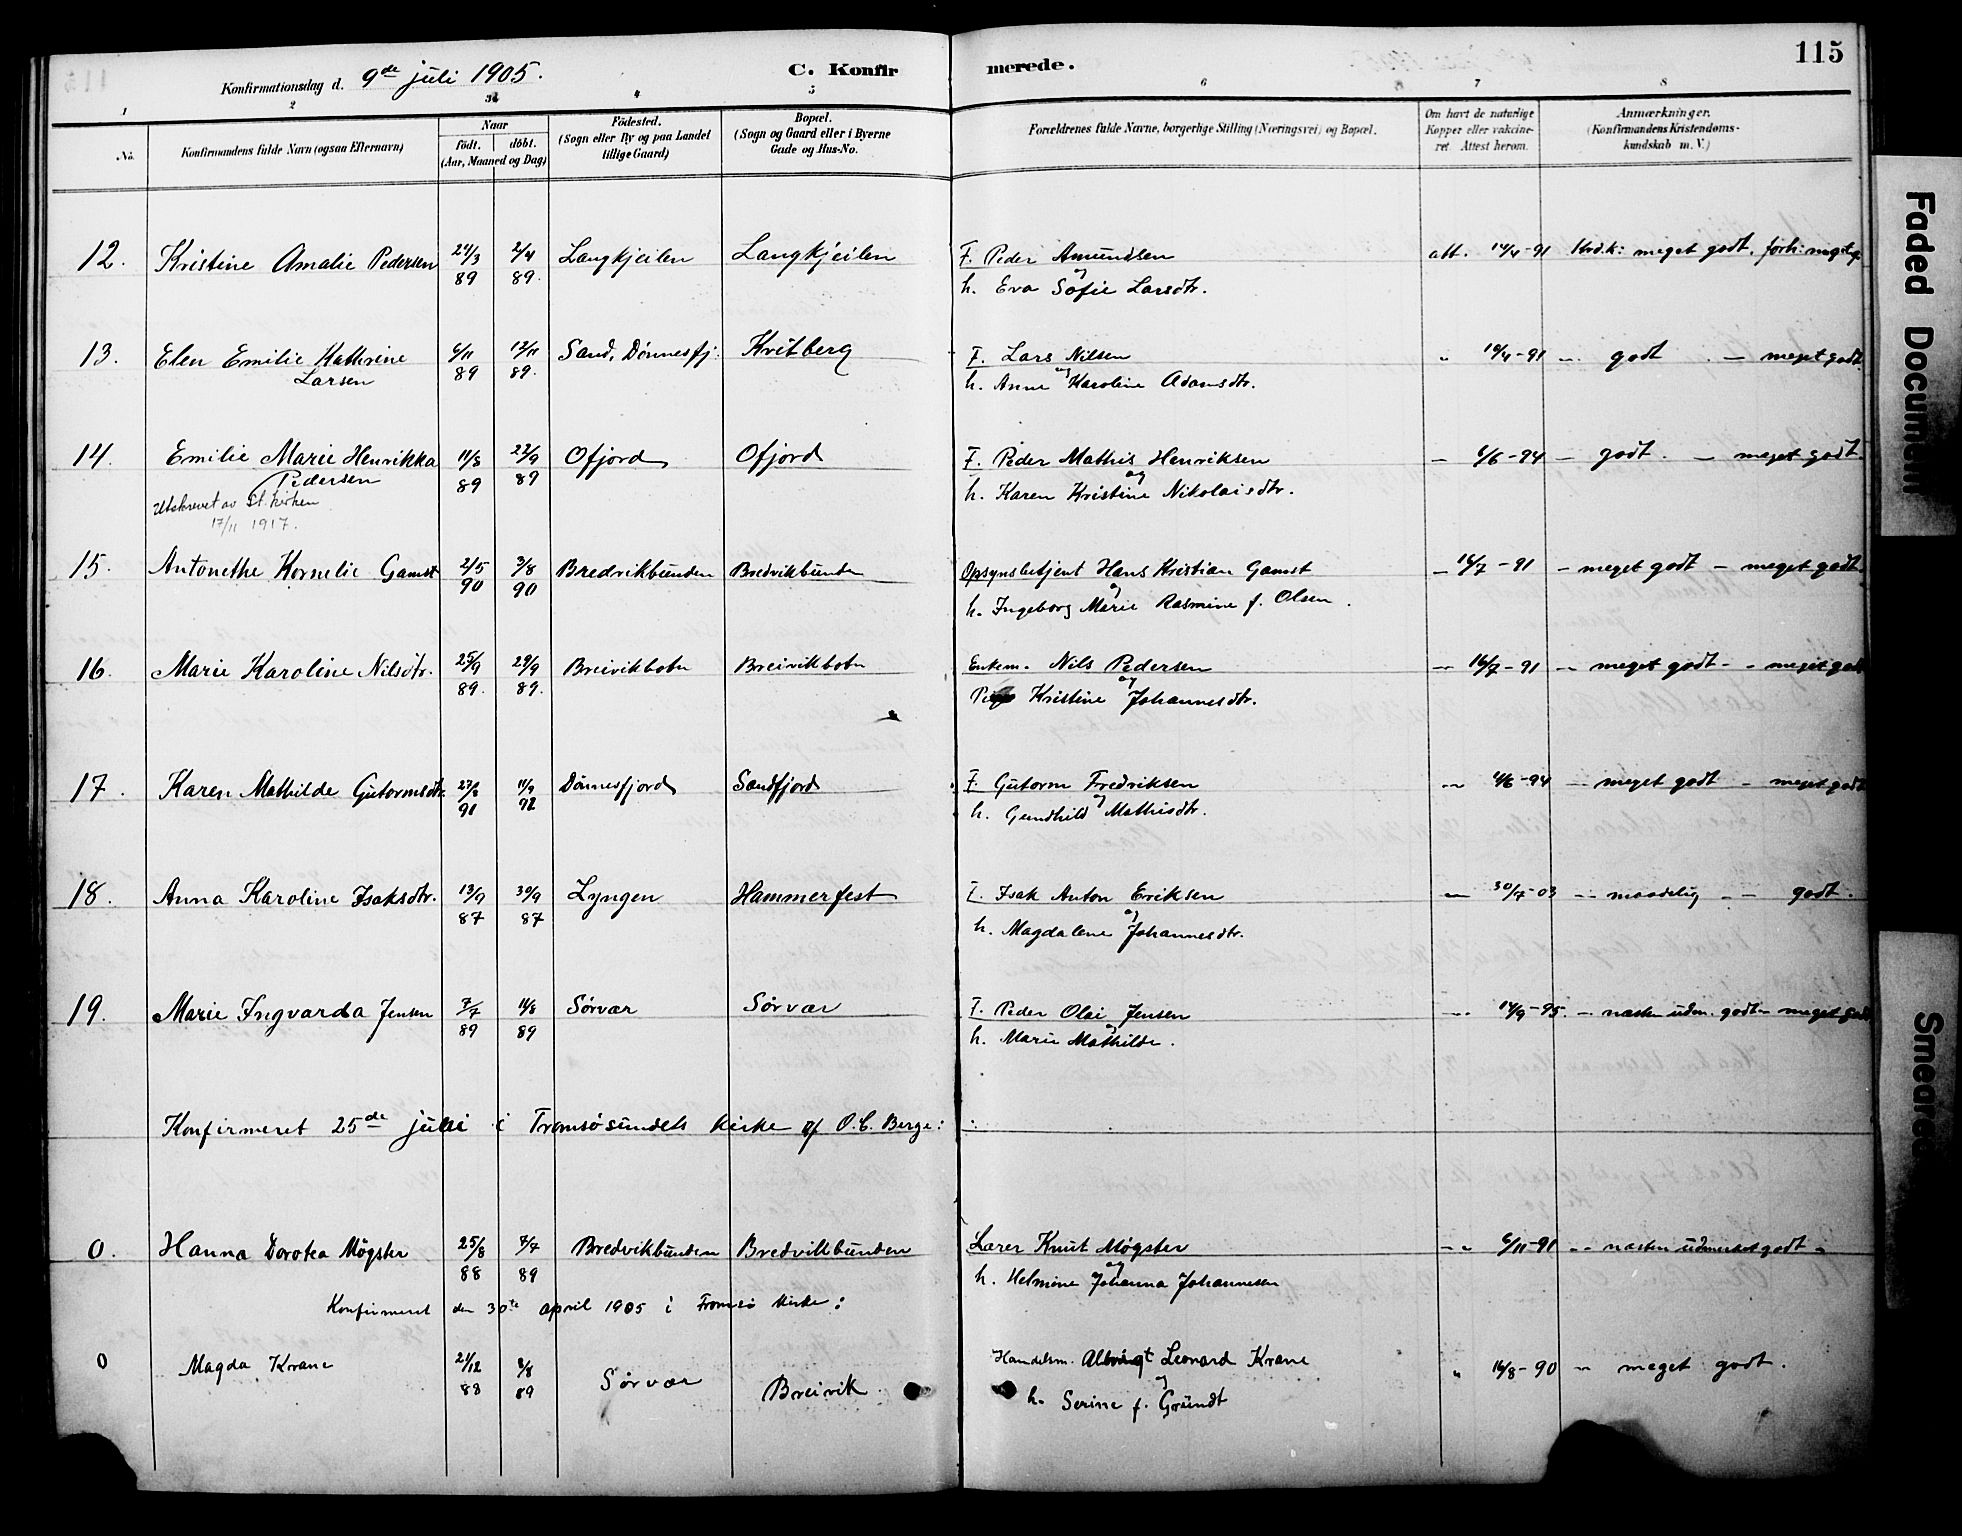 115
Konfirmationsdag d. 9de juli 1905.
C. Konfirmerede.
1 2 3 4 5 6 7 8
No.
Konfirmandens fulde Navn (ogsaa Efternavn)
Naar
født. døbt.
(Aar, Maaned og Dag)
Fødested.
(Sogn eller By og paa Landet
tillige Gaard)
Bopæl.
(Sogn og Gaard eller i Byerne
Gade og Hus-No.
Forældrenes fulde Navne, borgerlige Stilling (Næringsvei) og Bopæl.
Om havt de naturlige
Kopper eller vakcine-
ret. Attest herom.
Anmærkninger.
(Konfirmandens Kristendoms-
kundskab m. V.)
12. Kristine Amalie Pedersen 2/4 Langkjeilen Langkjeilen F. Peder Amundsen att. 14/4-91 Krdsk: meget godt, forh: meget g
89 89. og
h. Eva Sofie Larsdtr.
13. Elen Emilie Kathrine 6/11 17/11 Sand, Dønnesfj. Kvitberg F. Lars Nilsen " -91 - godt. - meget godt.
Larsen 89 89. og
h. Anne Karoline Adamsdtr.
14. Emilie Marie Henrikka 11/8 22/9 Ofjord Ofjord F. Peder Mathis Henriksen - 6/6-94 - godt. - meget godt.
Pedersen 89 89 og
h. Karen Kristine Nikolaisdtr.
Utskrevet av St. kirken
17/11 1917.
15. Antonethe Kornelie Gamst 2/5 3/8 Bredvikbunden Bredvikbunden Opsynsbetjent Hans Kristian Gamst - 16/7-91 - meget godt - meget godt.
90 90 og
h. Ingeborg Marie Rasmine f. Olsen.
16. Marie Karoline Nilsdtr. 25/9 29/9 Breivikbotn Breivikbotn Enkem. Nils Pedersen - 16/7-91 - meget godt - - meget godt
89. 89. og
Pige Kristine Johannesdtr.
17. Karen Mathilde Gutormsdtr. 27/8 11/9 Dønnesfjord Sandfjord F. Gutorm Fredriksen - 6/6-94 - meget godt - meget godt
91 92 og
h. Gundhild Mathisdtr.
18. Anna Karoline Isaksdtr. 13/9 30/9 Lyngen Hammerfest F. Isak Anton Eriksen - 30/7-03 - maadelig - - godt.
87 87 og
h. Magdalene Johannesdtr.
19. Marie Ingvarda Jensen 7/7 11/8 Sørvær Sørvær F. Peder Olai Jensen - 14/9-95. - næsten udm. godt - meget godt
89 89 og
h. Marie Mathilde.
Konfirmeret 25de juli i Tromsøsundets kirke af O. C. Berge:
0. Hanna Dorotea Møgster 25/8 7/7 Bredvikbunden Bredvikbunden Lærer Knut Møgster - 6/11-91 - næsten udmerket godt -
88 89 og
h. Helmine Johanna Johannesen
Konfirmeret den 30te april 1905 i Tromsø kirke:
0 Magda Krane 21/12 8/8 Sørvær Breivik Handelsm. Leonard Krane " 16/8-90 - meget godt.
88 89 og
h. Serine f. Gründt
Faded Document
Smeared